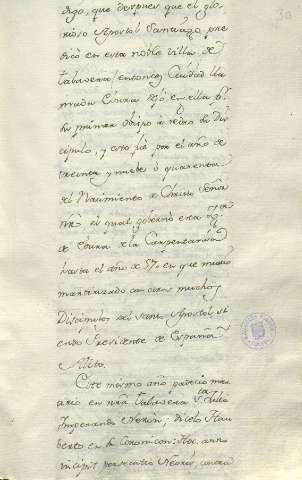 digo, que despues que el glo-
rioso Apostol Santiago pre
dicò en esta noble villa de
Talavera entonces Ciudad lla
mada Ebura dejò en ella 
por primer obispo à Pedro su dis
cipulo, y esto fue por el año de
treinta y nueve ò quarenta
del Nacimiento de Christo Señor
nro. el qual governò esta Yga
de Ebura de la Carpentania
hasta el año de 57. en que murio
martirizado con otros muchos
Discipulos del Santo Apostol si
endo Presidente de España
Allito.
Este mismo año padecio mar
tirio en nra Talavera Sta
Imperando Neron; dicelo Hau
berto en su Cronicon: Hoc anno
incipit persecutio Neronis contra
30